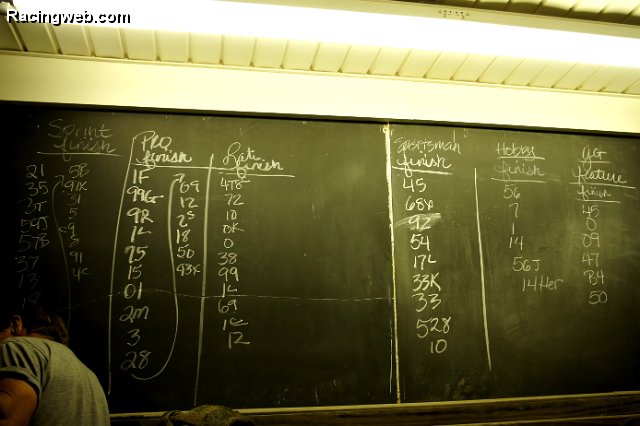 Racingweb.com
Sprint
finish
21
35
37
59J
57B
37
13
5B
91X
31
5
9
8
91
4C
PRO
finish
1F
99G
9R
1L
75
15
01
2M
3
28
69
12
2S
18
50
93X
Late
finish
47B
72
10
0K
0
38
99
1L
69
1C
12
Sportsman
finish
45
68X
92
54
17L
33K
33
528
10
Hobby
finish
56
7
1
14
56J
14Her
UG
feature
finish
45
0
09
47
B4
50